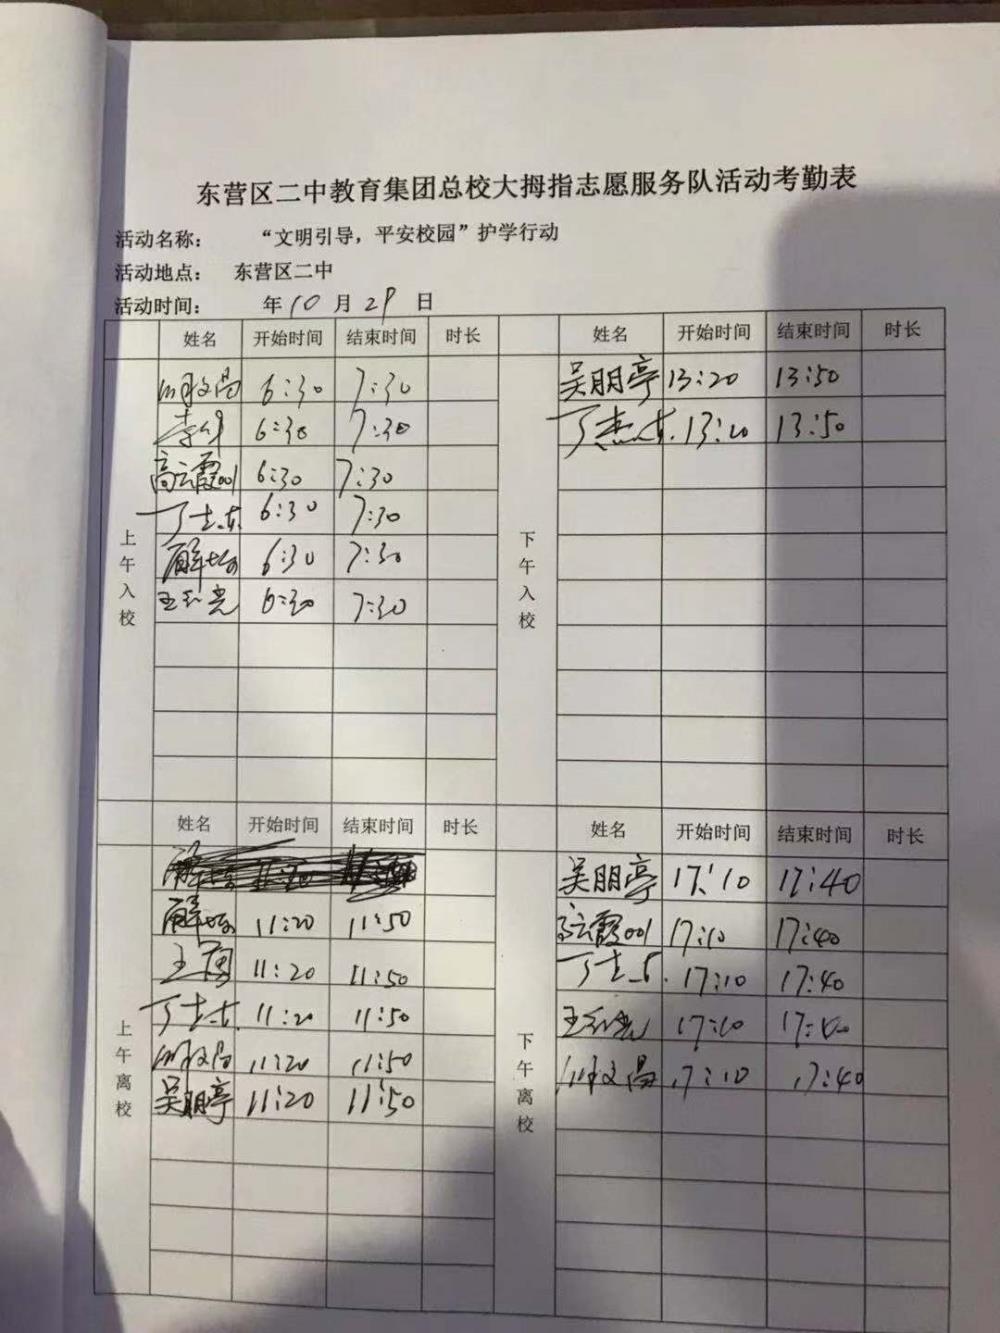 东营区二中教育集团总校大拇指志愿服务队活动考勤表
活动名称： “文明引导，平安校园”护学行动
活动地点： 东营区二中
活动时间： 年10月29日
姓名 开始时间 结束时间 时长
上午入校
6:30 7:30
李 6:30 7:30
高云霞001 6:30 7:30
丁 6:30 7:30
解 6:30 7:30
王 6:30 7:30
姓名 开始时间 结束时间 时长
下午入校
吴朋亭 13:20 13:50
丁 13:20 13:50
姓名 开始时间 结束时间 时长
上午离校
解 11:20 11:50
王 11:20 11:50
丁 11:20 11:50
11:20 11:50
吴朋亭 11:20 11:50
姓名 开始时间 结束时间 时长
下午离校
吴朋亭 17:10 17:40
高云霞001 17:10 17:40
丁 17:10 17:40
王 17:10 17:40
17:10 17:40